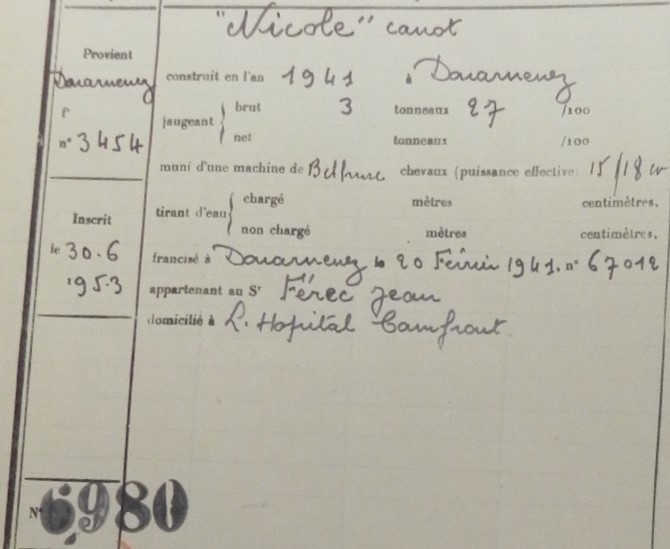 "Nicole" canot
Provient
Douarnenez
fº
nº 3454
construit en l'an 1941 à Douarnenez
jaugeant
brut 3 tonneaux 27 /100
net tonneaux /100
muni d'une machine de chevaux (puissance effective) 15/18 cv
tirant d'eau
chargé mètres centimètres.
non chargé mètres centimètres.
Inscrit
le 30.6
1953
francisé à Douarnenez le 20 Février 1941. nº 67012
appartenant au Sr Férec Jean
domicilié à L. Hopital Camfrout
Nº 6980